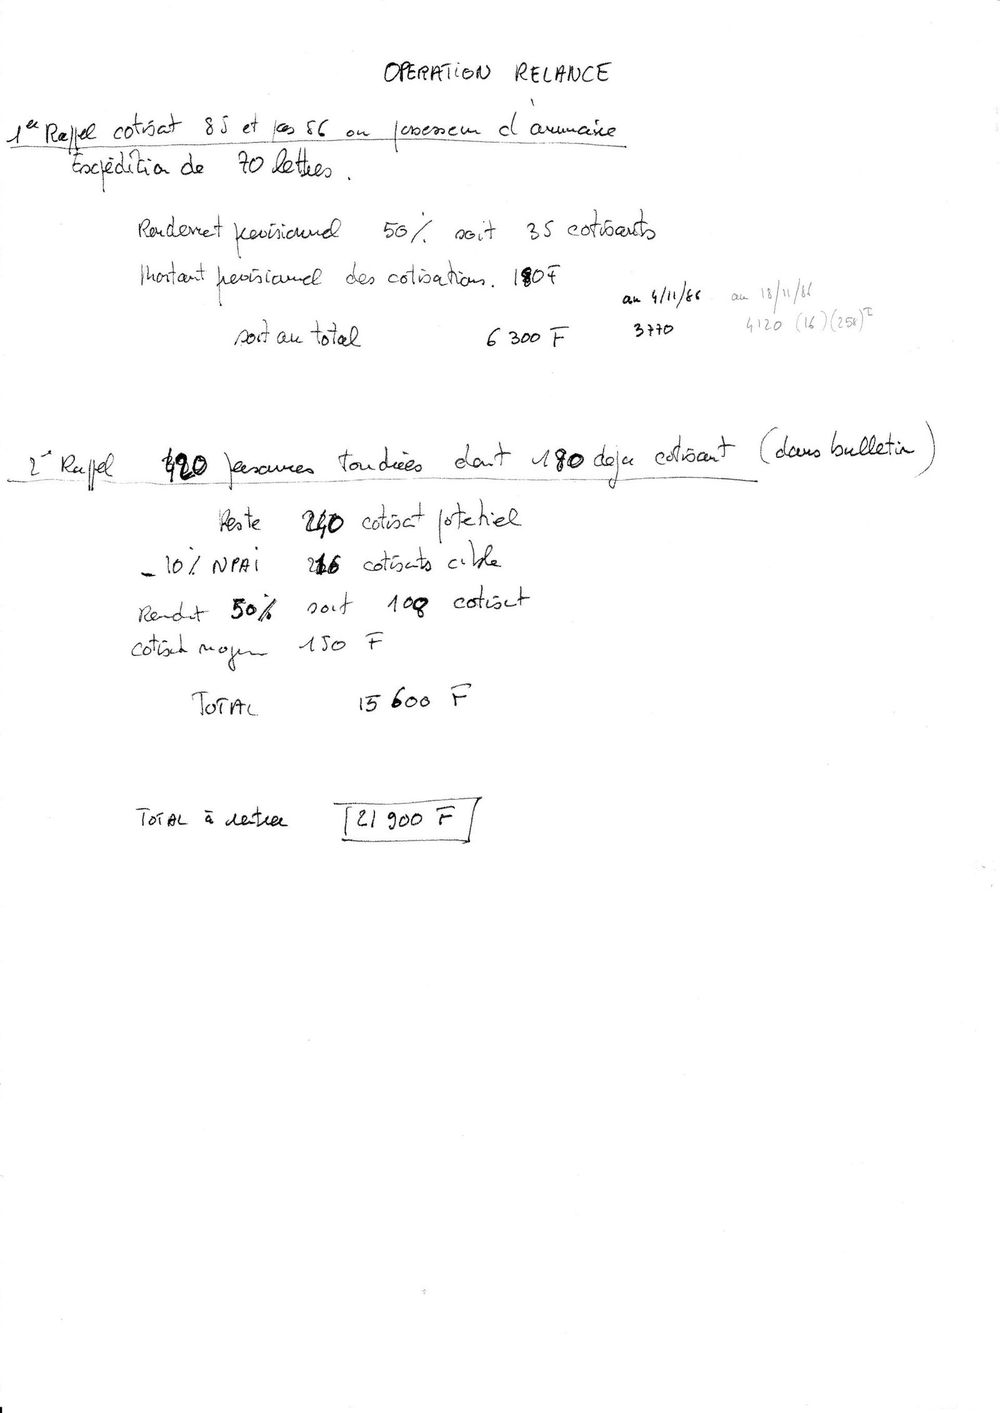 OPERATION RELANCE
1er Rappel cotisat 85 et pas 86 ou possesseur d'annuaire
Expédition de 70 lettres.
Rendemet previsionnel 50% soit 35 cotisants
Montant previsionnel des cotisations. 180F
au 4/11/86 au 18/11/86
soit au total 6 300 F 3770 4120 (16)
2e Rappel 420 personnes touchées dont 180 deja cotisant (dans bulletin)
Reste 240 cotisat potentiel
- 10% NPAi 216 cotisants cible
Rendt 50% soit 108 cotisat
cotisat moyen 150 F
TOTAL 15 600 F
TOTAL à rentrer 21 900 F